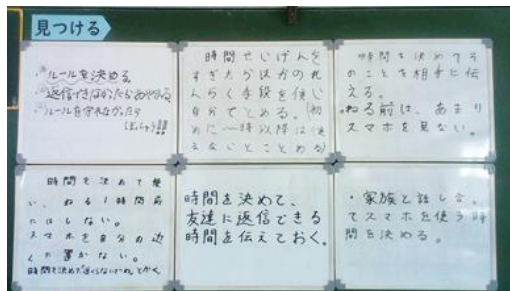 見つける
ルールを決める
返信できなかったらあやまる
ルールを守れなかったら
ぼっしゅう!!
時間せいげんを
すぎたらほかのれ
んらく手段を使い
自分でとめる。(初
めに〜時以降は使
えないとことめる)
時間を決めてそ
のことを相手に伝
える。
ねる前は、あまり
スマホを見ない。
時間を決めて使
い、ねる1時間前
にはしない。
スマホを自分の近
くに置かない。
時間を決めて
時間を決めて、
友達に返信できる
時間を伝えておく。
・家族と話し合っ
てスマホを使う時
間を決める。